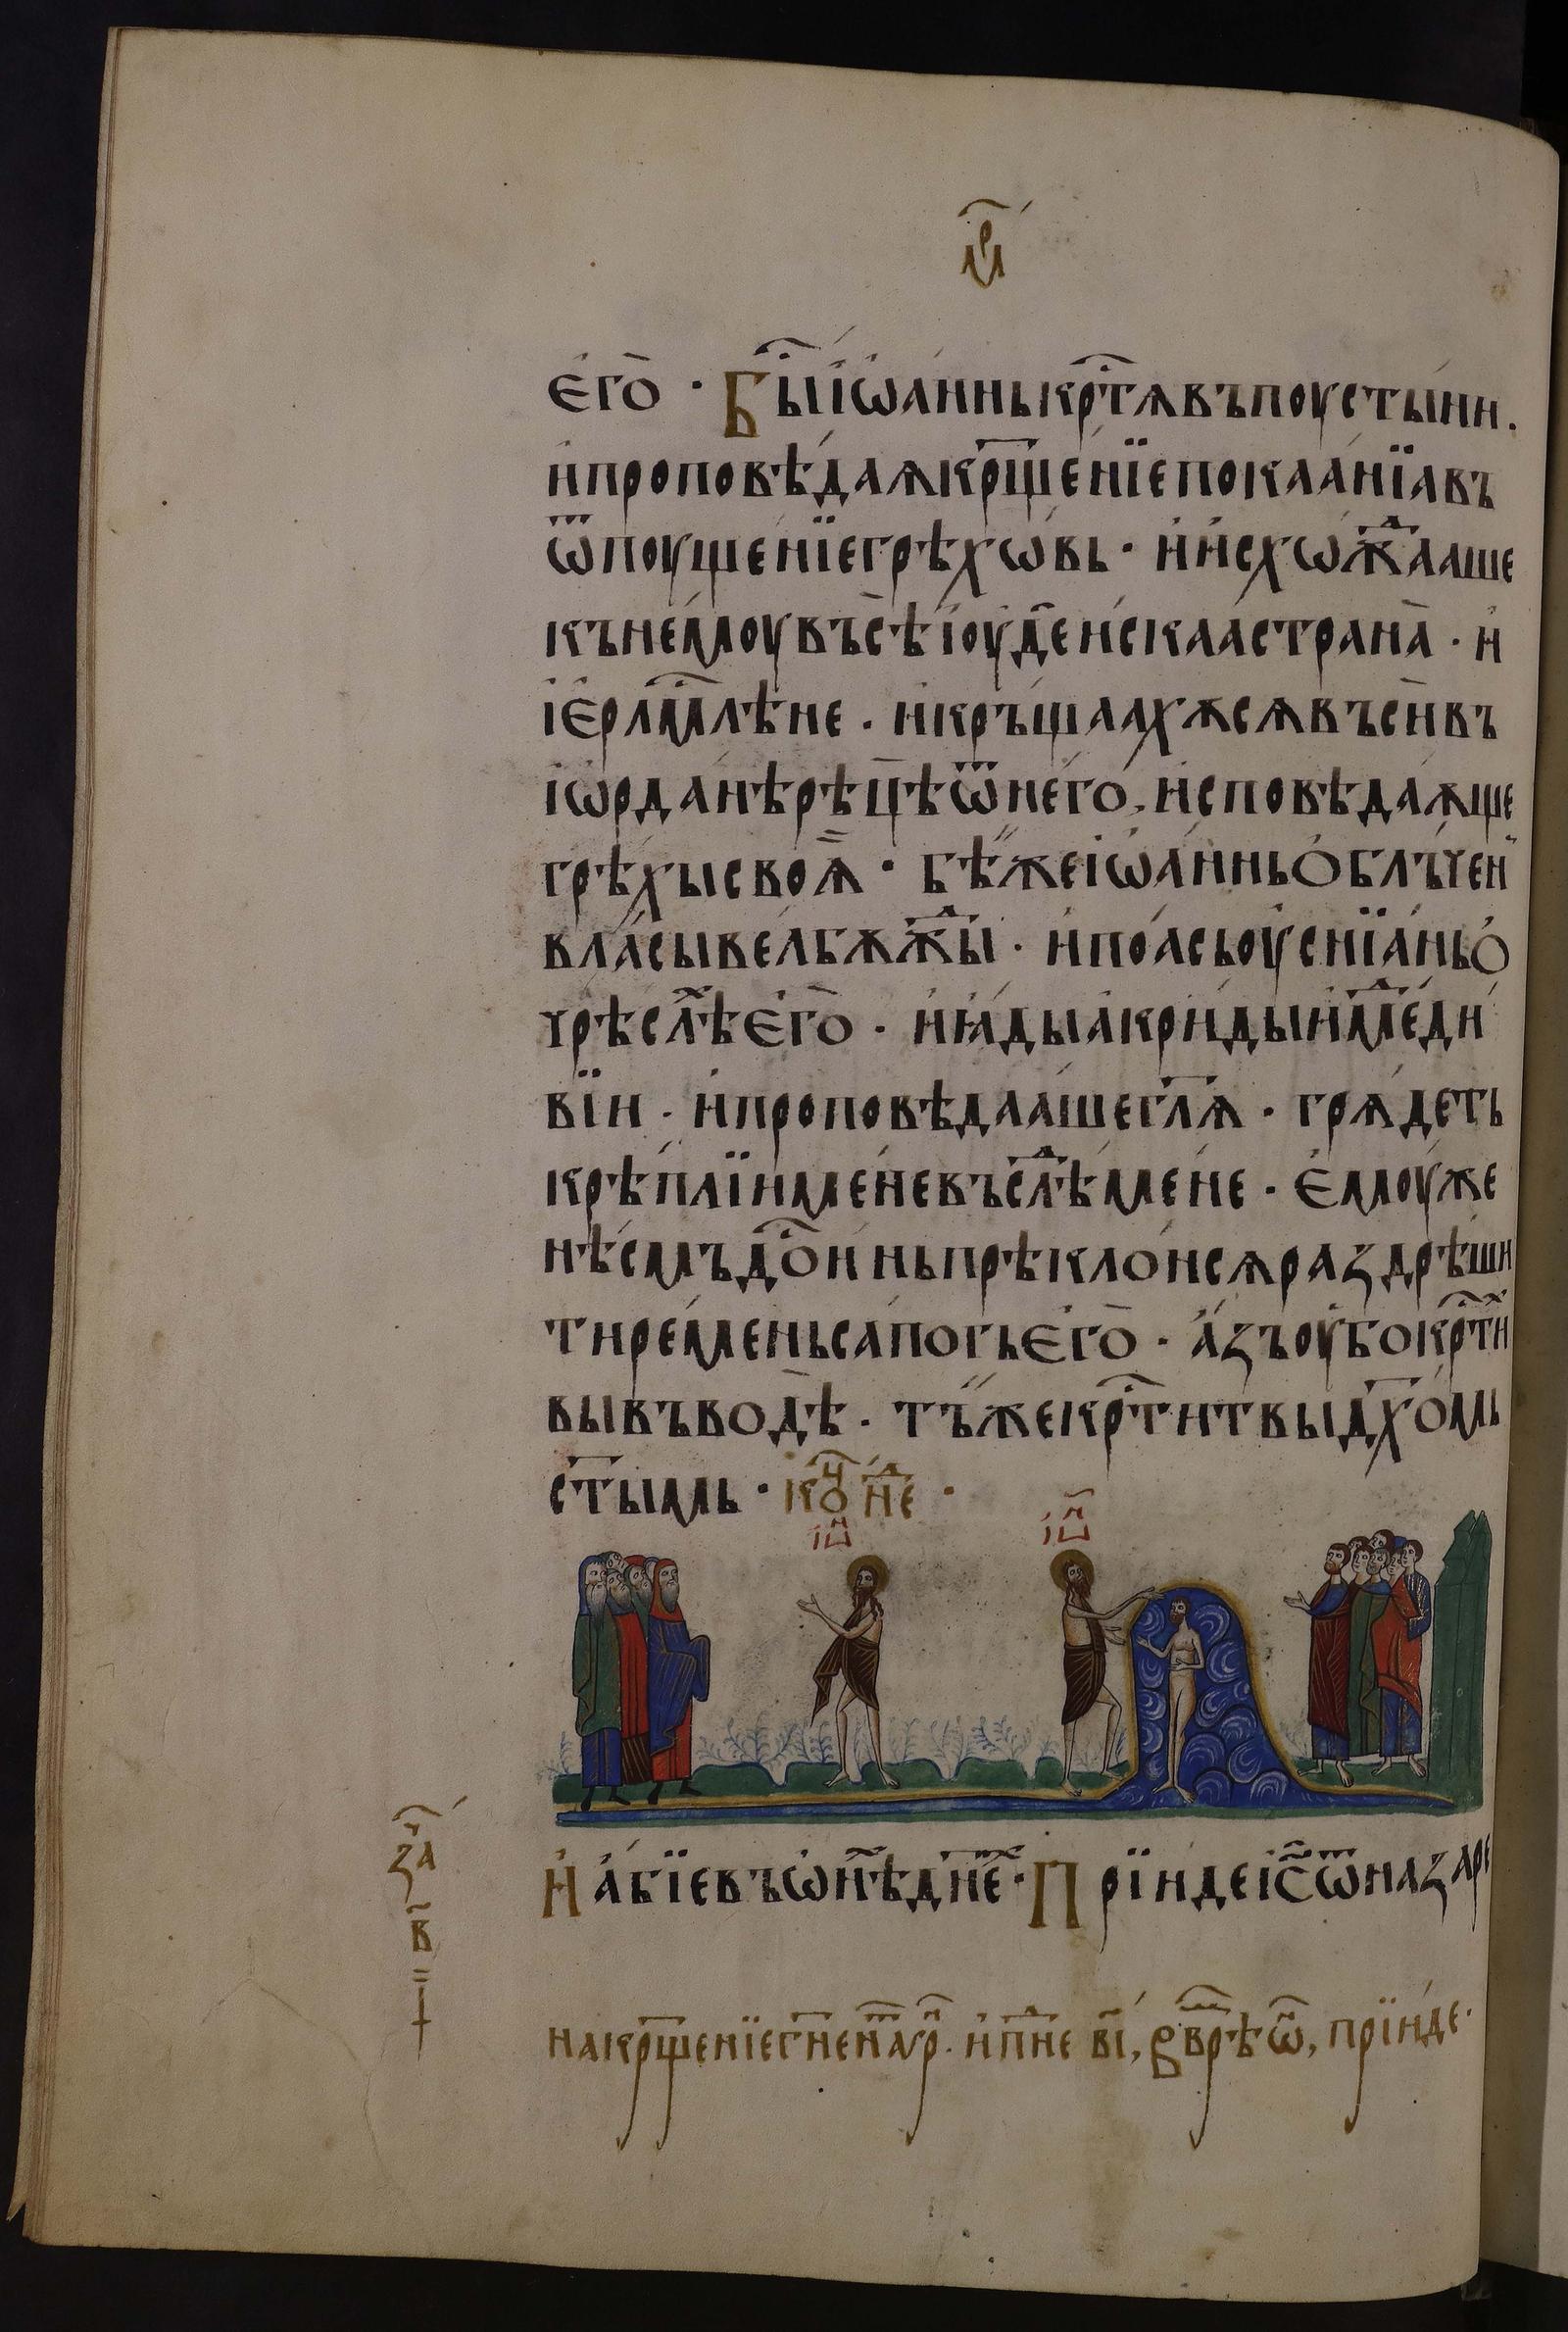 мр҃
є҆го̀ · Бы҇ і҆ѡа́ннь кр҇тѧ въ поусты́ни .
и҆ проповѣ́даѧ кр҃ще́нїе покаа́нїа въ
ѿпоуще́нїе грѣхѡ́вь · и҆ и҆схѡжⷣааше
къ не́моу въсѣ̀ і҆оуде́и҆скаа страна̀ · и҆
і҆є҆рл҇млѣне . и҆ кръща́ахѫсѧ въсѝ въ
і҆ѡрда́нѣ рѣцѣ̀ ѿ него̀, и҆сповѣда́ѫще
грѣхы́ своѧ̀ · бѣ́ же і҆ѡа́ннь о҆блъче́н
вла́сы велбѫжⷣы . и҆ по́ась оу҆снїа́нь о҆
чрѣслѣⷯ є҆го̀ . и҆ ꙗ҆ды̀ а҆кри́ды и҆ меⷣ ди́
вїи . и҆ проповѣдаа́ше гл҃ѧ · грѧ́деть
крѣ́плїи менѐ въслѣⷣ менѐ · є҆моу́же
нѣ́смъ до҇и́нь прѣкло́нсѧ раздрѣши́
ти реме́нь сапо́гь є҆го̀ · а҆́зъ оу҆́бо кр҇тиⷯ
вы въ водѣ̀ . тъ́ же кр҇титвы дх҃о́мь
ст҃ы́мь · коⷱ҇ неⷣ ·
і҆ѡⷩ҇ і҆ѡⷩ҇
И҆ а҆́бїе въ ѡ҆нѣⷯ дн҃еⷯ · Прїи́де і҆с҃ ѿ назаре
за҇ч
в҃
на кр҃щенїе гн҃е ген҇ар . и҆ пⷣне в҃і, ѕ҆ вр҇ѣ ѡ҆н, прїи́де ·